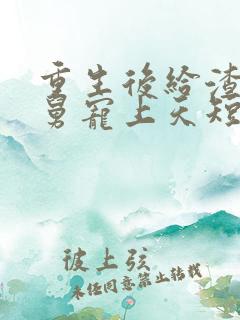 重生後給渣
舅寵上天短
被上弦
未经同意禁止转载